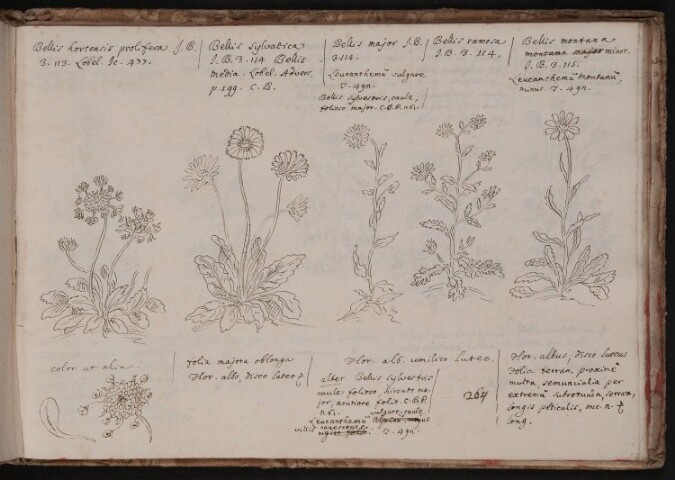 Bellis hortensis prolifera J.B.
3. 113. Lobel. Ic. 477.
Bellis Sylvatica
J.B. 3. 114 Bellis
media. Lobel. Advers.
p. 199. C.B.
Bellis major J.B.
3.114.
Leucanthemū vulgare
T. 492.
Bellis sylvestris, caule
folioso major. C.B.P.
Bellis ramosa
J.B. 3. 114.
Bellis montana
montana major minor.
J.B. 3. 115.
Leucanthemū montanū,
minus. T. 492.
color ut alia.
folia majora oblonga
Flor. albo, disco luteo
Flor. alb. umilico luteo.
alter Bellis sylvestris
caule folioso, hirsuto
folio C.B.P.
vulgare, caule
Leucanthemū
villis canescente
T. 492.
264
Flor. albus, disco luteus
Folia terram proxime
multa, semuncialia per
extremū subrotunda, serrata,
longis peticulis,
long.